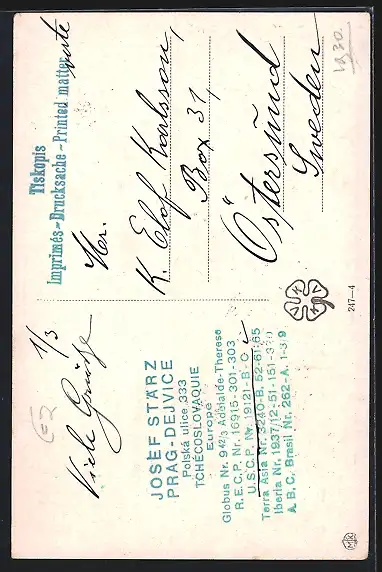 1930.
Tiskopis
Imprimés-Drucksache-Printed matter
Hr.
K. Elof Karlsson,
Box 31,
Östersund
Sweden
1/3
Viele Grüße
JOSEF STÄRZ
PRAG-DEJVICE
Polská ulice 333
TCHÉCOSLOVAQUIE
Europe
Globus Nr. 942/3 Adélaïde-Therese
R.E.C.P. Nr. 16915-301-303
U.S.C.P. Nr. 19121-B-C
Terra Asia Nr. 3240-B. 52-61-65
Iberia Nr. 1937/12-51-151-
A.B.C. Brasil Nr. 262-A.
247-4